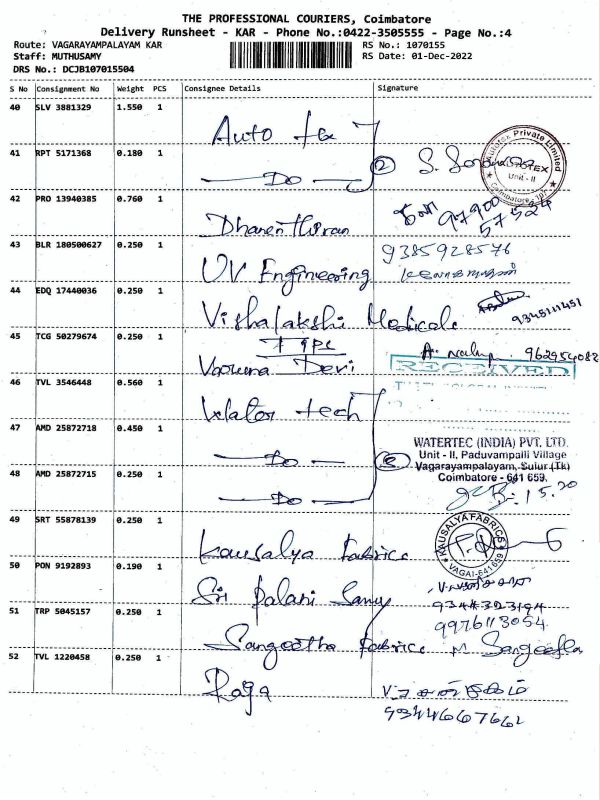 THE PROFESSIONAL COURIERS, Coimbatore
Delivery Runsheet - KAR - Phone No.:0422-3505555 - Page No.:4
Route: VAGARAYAMPALAYAM KAR
RS No.: 1070155
Staff: MUTHUSAMY
RS Date: 01-Dec-2022
DRS No.: DCJB107015504
S No Consignment No Weight PCS Consignee Details Signature
40 SLV 3881329 1.550 1
Auto tex
41 RPT 5171368 0.180 1
Do
2
Private Limited
Unit - II
Coimbatore
42 PRO 13940385 0.760 1
Dhanenthiran
97900
57524
43 BLR 180500627 0.250 1
UV Engineering
9385928576
44 EDQ 17440036 0.250 1
Vishalakshi Medicals
9345111451
45 TCG 50279674 0.250 1
Devi
RECEIVED
46 TVL 3546448 0.560 1
Water tech
47 AMD 25872718 0.450 1
Do
WATERTEC (INDIA) PVT. LTD.
Unit - II, Paduvampalli Village
Vagarayampalayam, Sulur (Tk)
Coimbatore - 641 659.
48 AMD 25872715 0.250 1
Do
15.20
49 SRT 55878139 0.250 1
Kausalya Fabrics
KAUSALYA FABRICS
VAGAI-641659
50 PON 9192893 0.190 1
Sri Palani Samy
9344323194
9976113054
51 TRP 5045157 0.250 1
Sangeetha Fabrics M. Sangeetha
52 TVL 1220458 0.250 1
Raga
9344667662